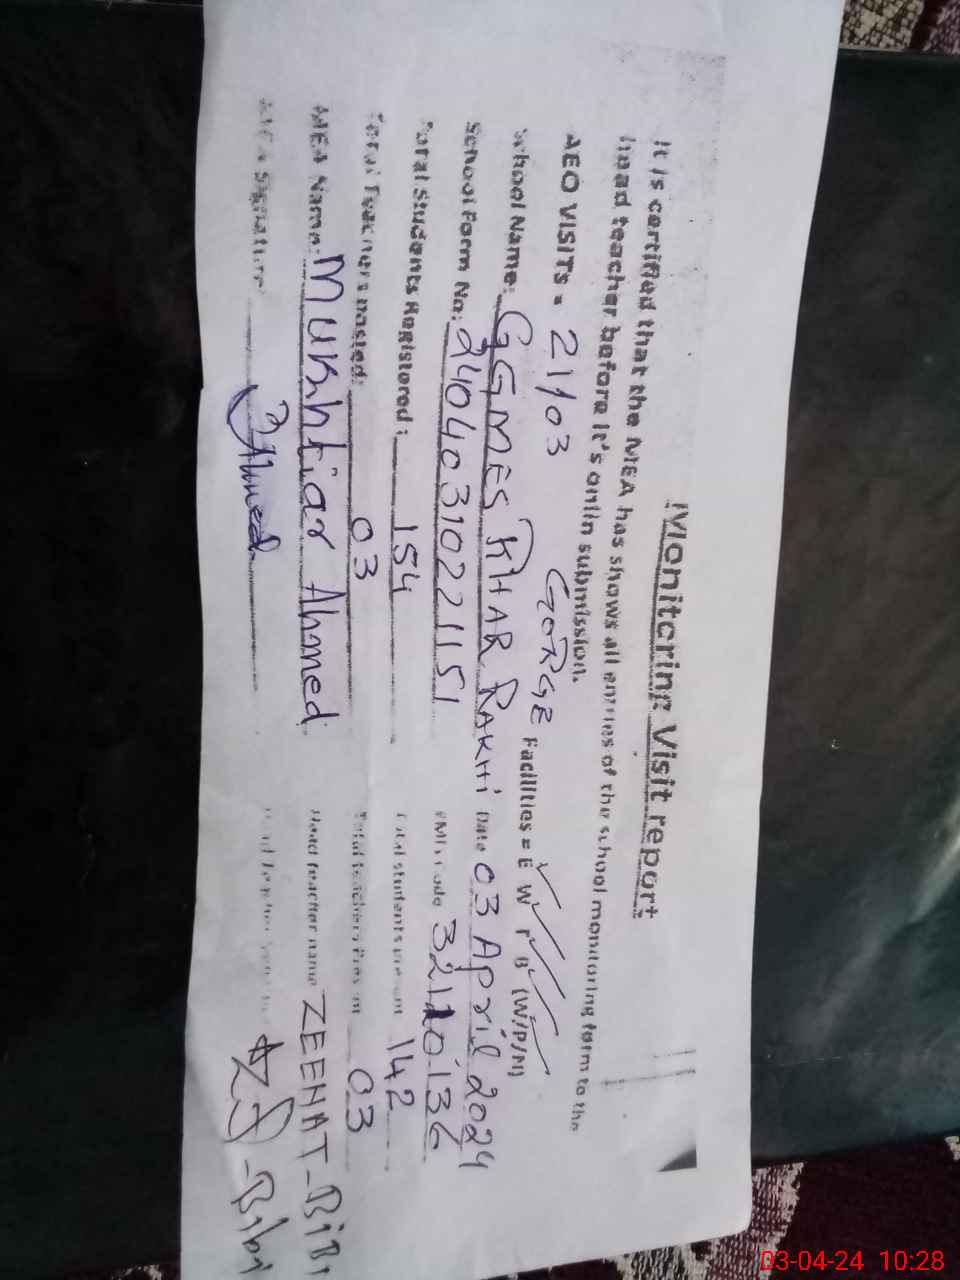 Monitoring Visit report
It is certified that the MEA has shows all entries of the school monitoring form to the
head teacher before it's onlin submission.
AEO VISITS = 21/03 GORGE Facilities = E W T B (W/P/N)
School Name: GGMES KHAR RAKHI Date 03 April 2024
School Form No: 24040310221151 EMIS code 32110136
Total Students Registered: 154 Total students present 142
Total Teachers posted: 03 Total teachers Present 03
MEA Name: Mukhtiar Ahmed Head teacher name ZEENAT-BiBi
MEA Signature Ahmed Head Teacher -Bibi
03-04-24 10:28